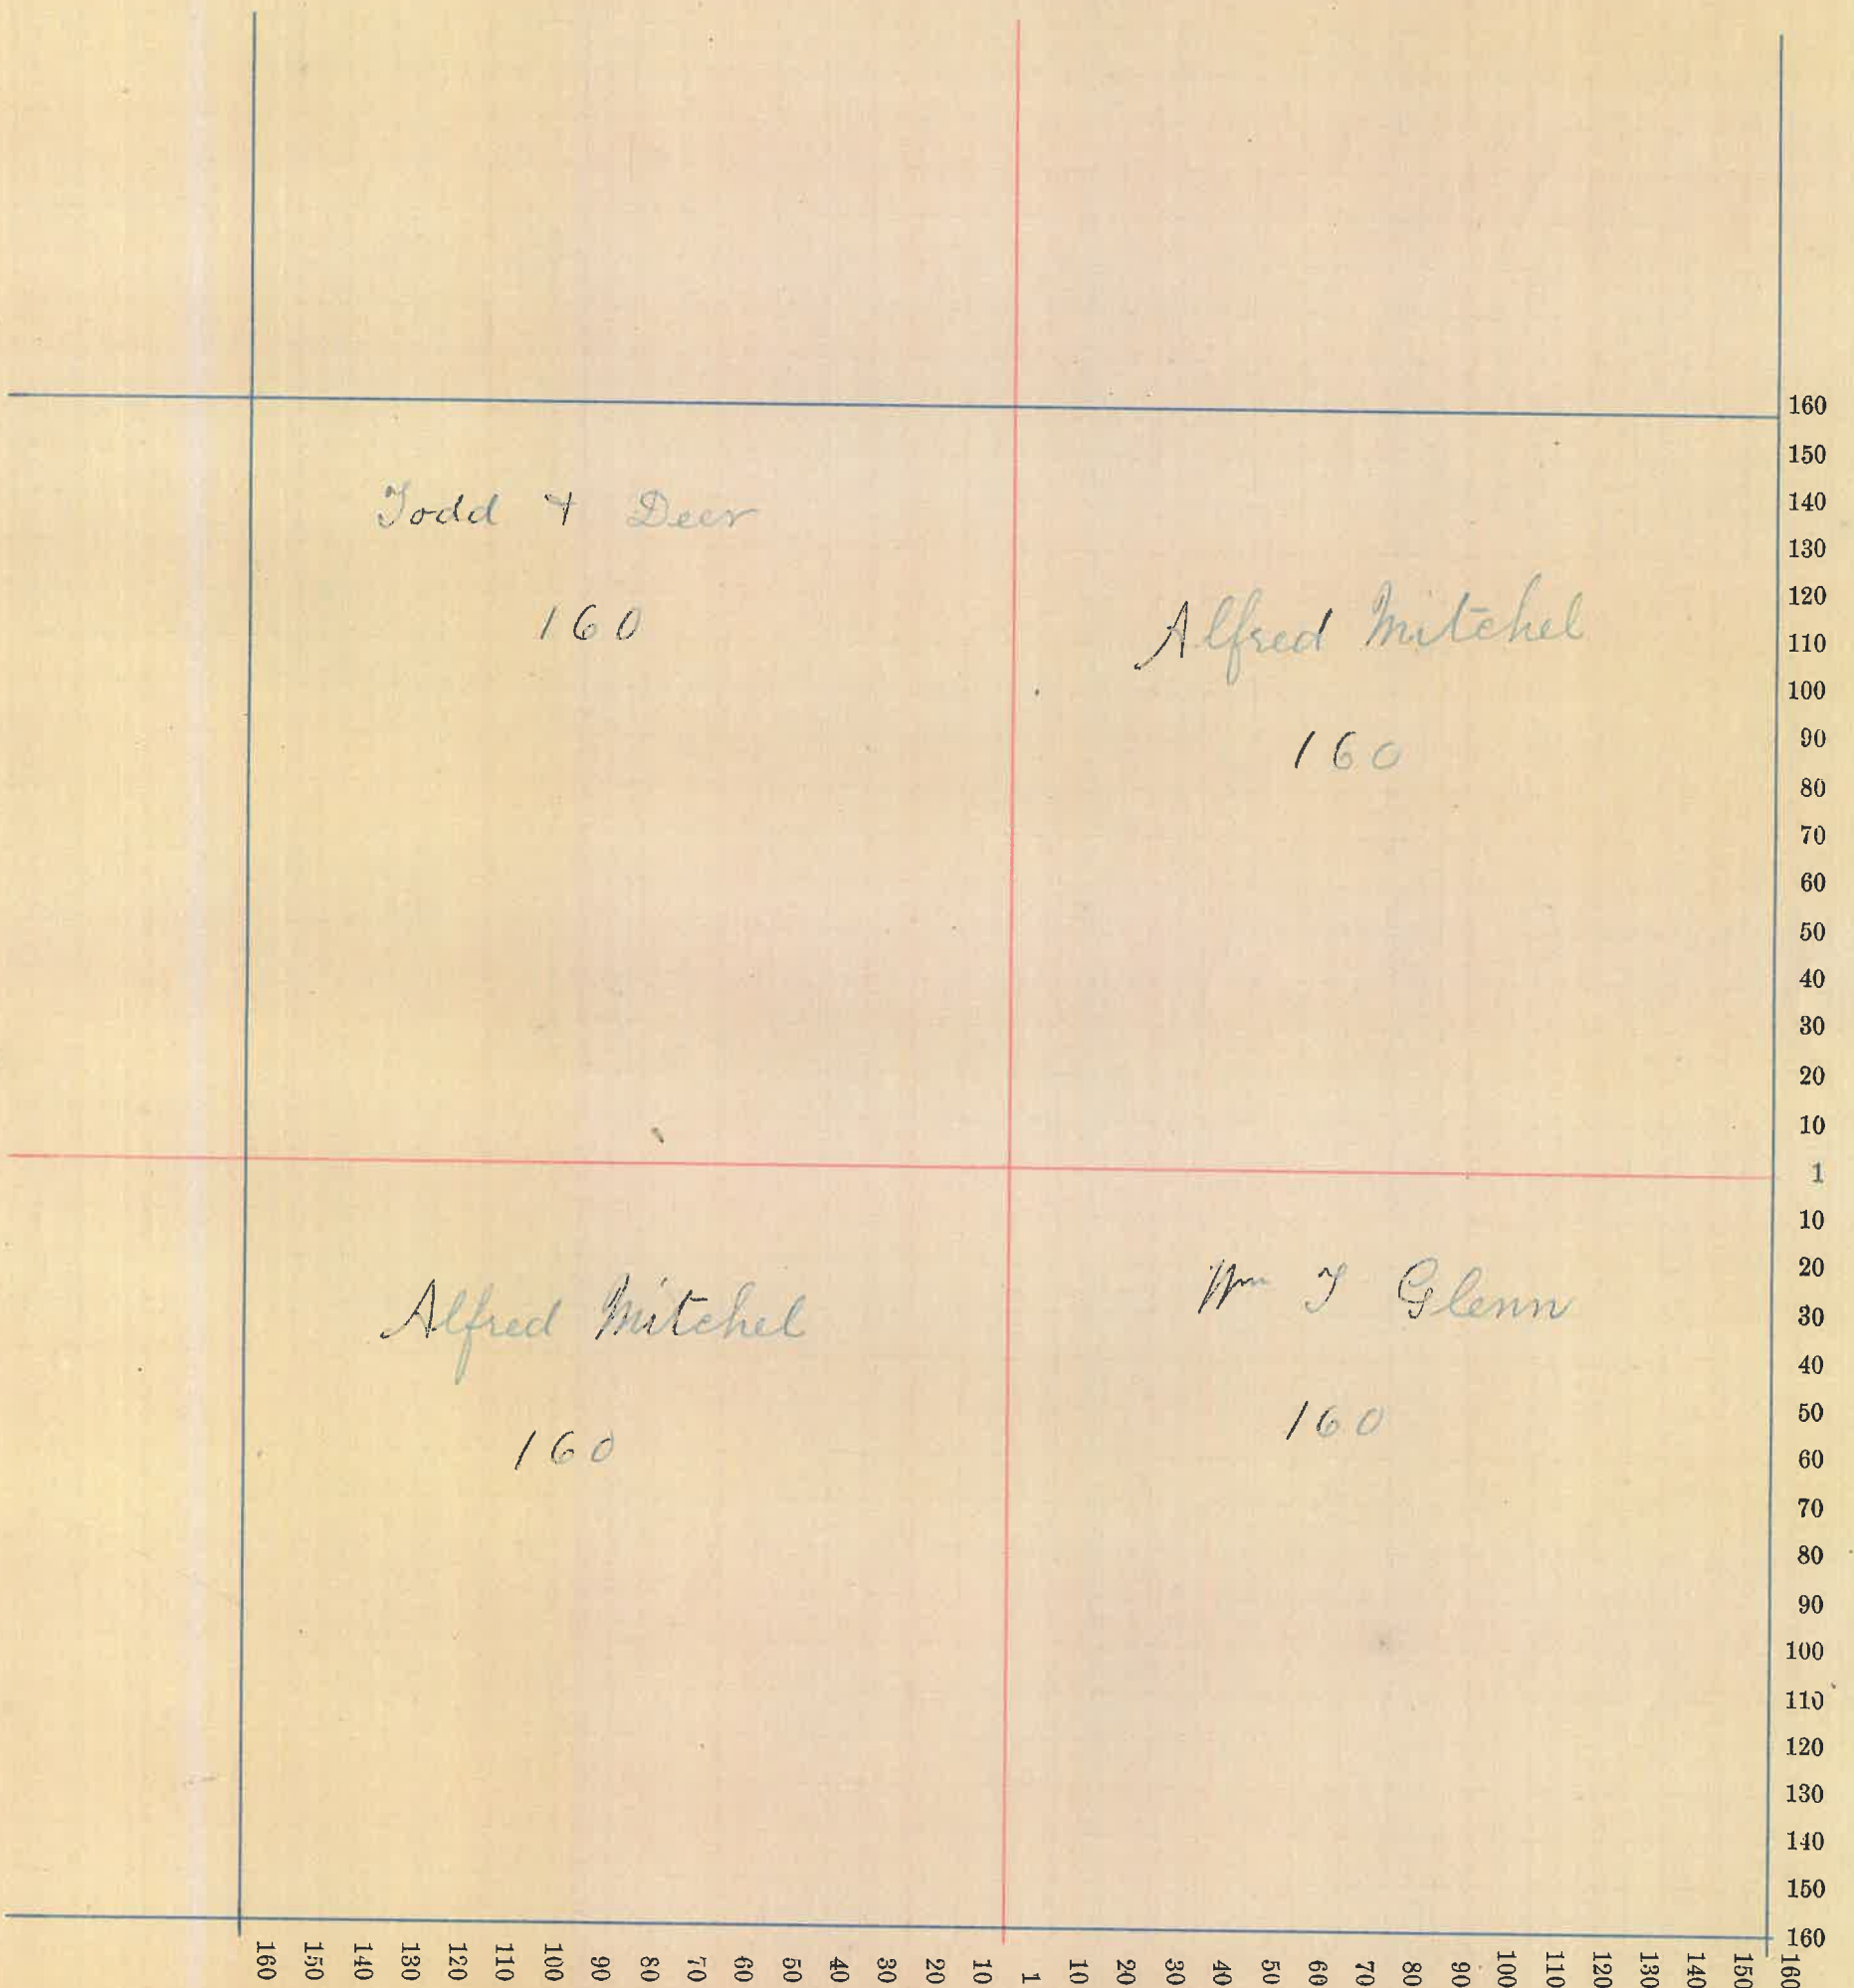 Todd + Deer
160
Alfred Mitchel
160
Alfred Mitchel
160
Wm T Glenn
160
160
150
140
130
120
110
100
90
80
70
60
50
40
30
20
10
1
10
20
30
40
50
60
70
80
90
100
110
120
130
140
150
160
160 150 140 130 120 110 100 90 80 70 60 50 40 30 20 10 1 10 20 30 40 50 60 70 80 90 100 110 120 130 140 150 160